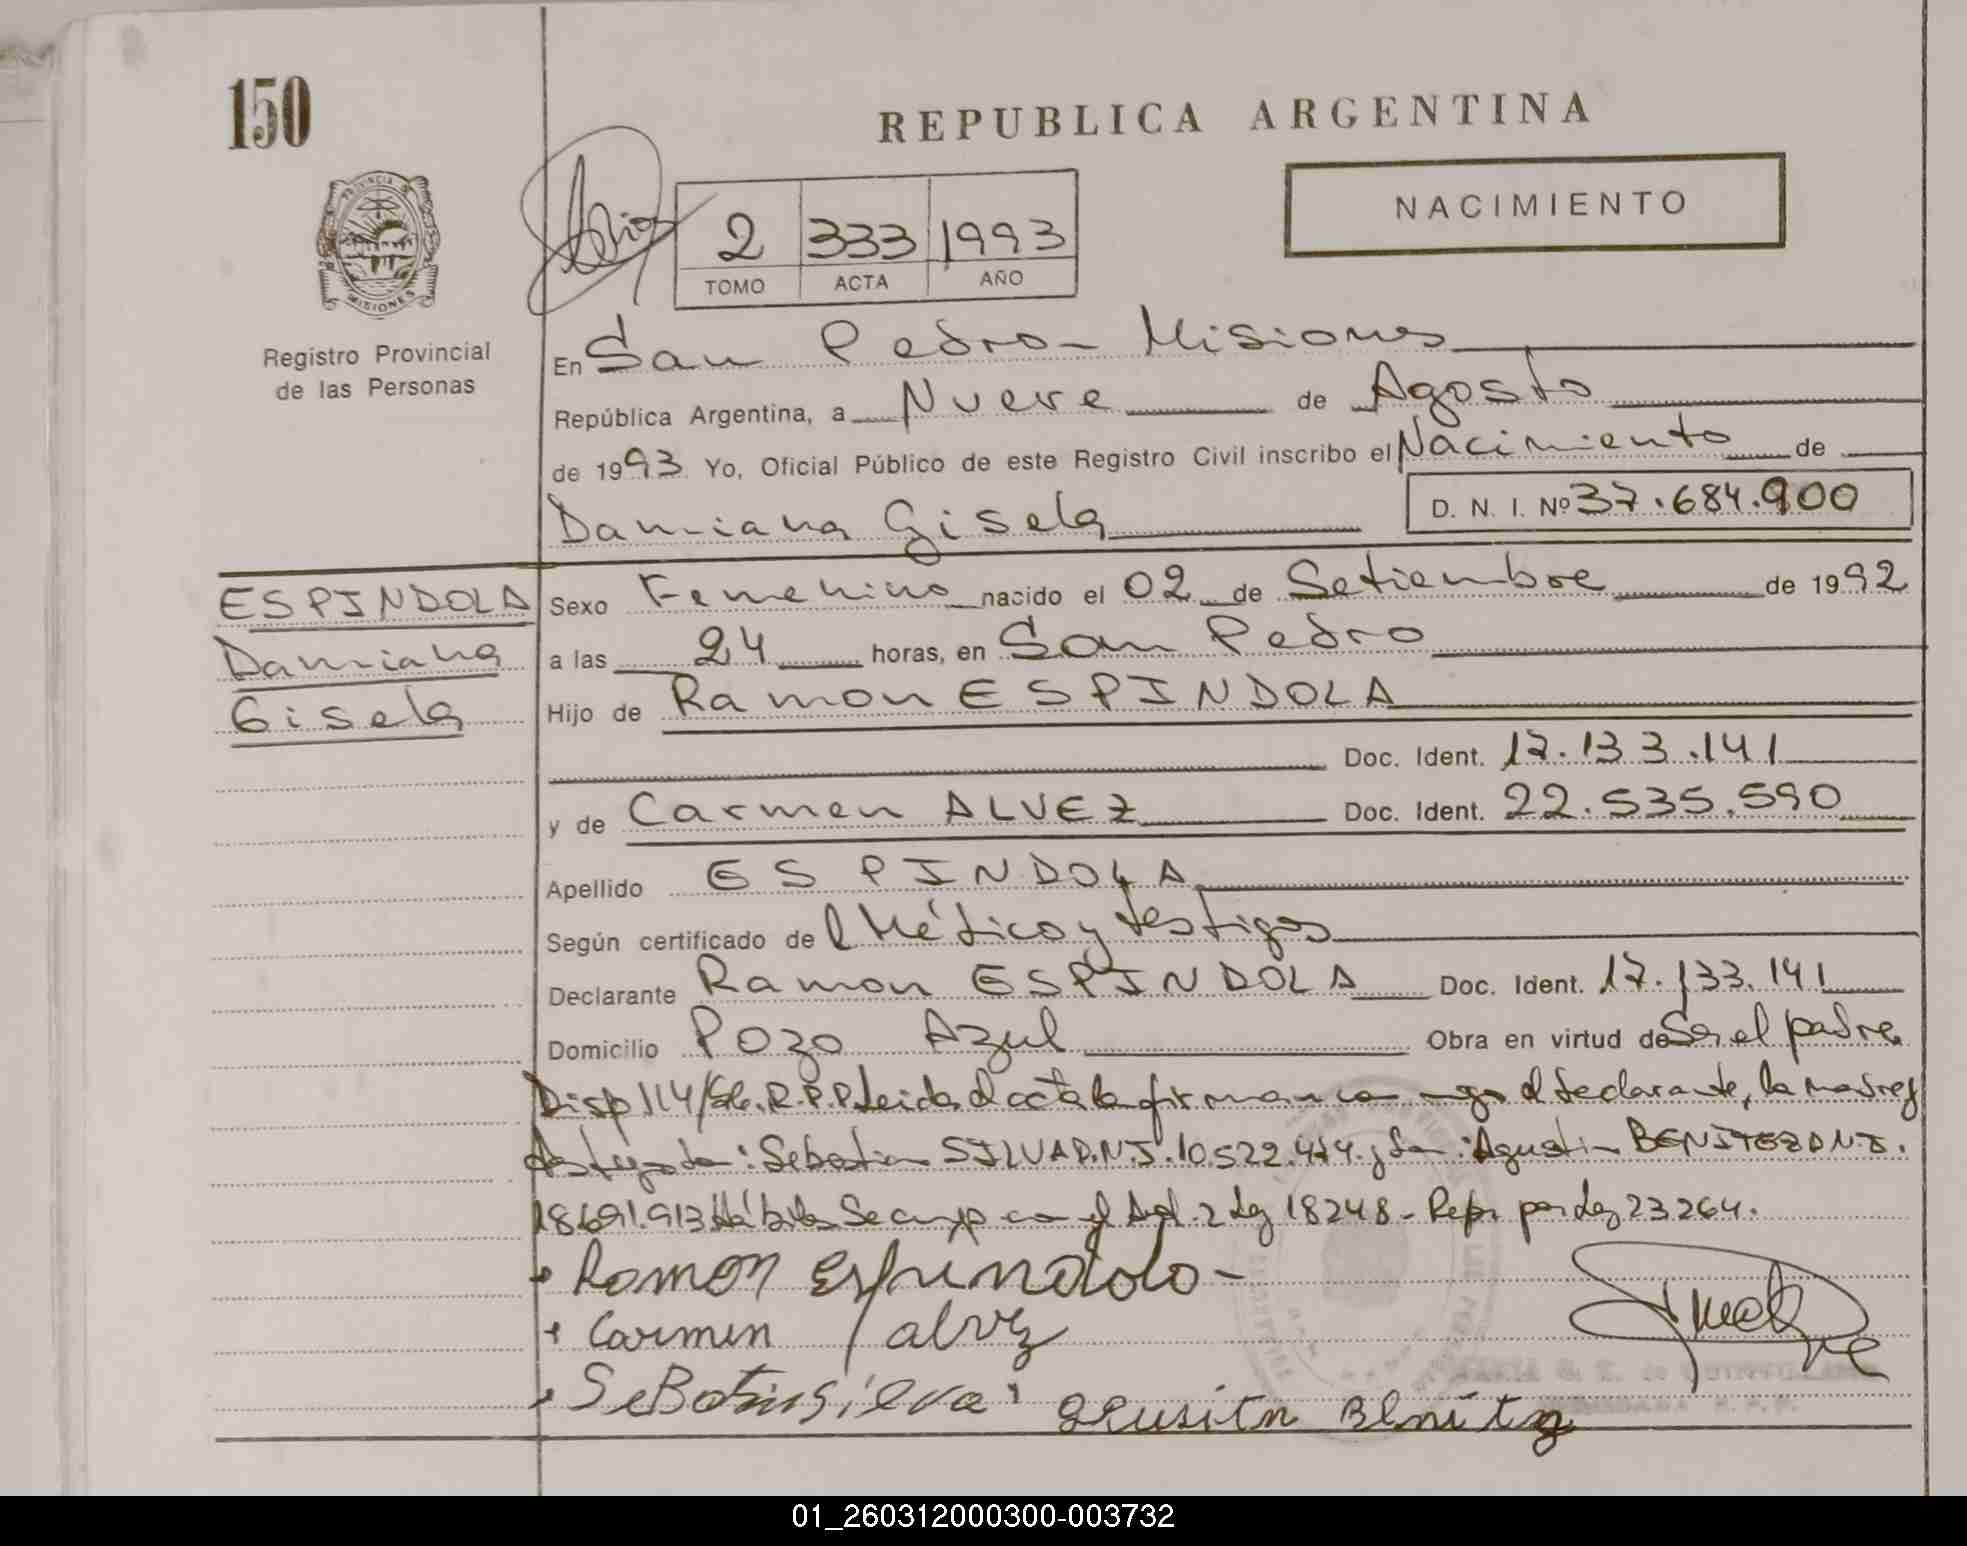 150
REPUBLICA ARGENTINA
NACIMIENTO
PROVINCIA DE
MISIONES
Registro Provincial
de las Personas
2 333 1993
TOMO ACTA AÑO
En San Pedro - Misiones
República Argentina, a Nueve de Agosto
de 1993 Yo, Oficial Público de este Registro Civil inscribo el Nacimiento de
Damiana Gisela D. N. I. Nº 37.684.900
ESPINDOLA
Damiana
Gisela
Sexo Femenino nacido el 02 de Setiembre de 1992
a las 24 horas, en San Pedro
Hijo de Ramon ESPINDOLA
Doc. Ident. 17.133.141
y de Carmen ALVEZ Doc. Ident. 22.535.590
Apellido ESPINDOLA
Según certificado de l Médico y testigos
Declarante Ramon ESPINDOLA Doc. Ident. 17.133.141
Domicilio Pozo Azul Obra en virtud de Ser el padre
Disp 114/86. R.P.P. Leida el acta la firman el declarante, la madre y
Sebastian SILVA D.N.I. 10.522.474 y Agustin BENITEZ D.N.I.
18691.913 Hábiles Se 2 Ley 18248 - Refr por Ley 23264.
Ramon Espindola -
Carmen alvez
SeBatiansilva
Benitez
01_260312000300-003732